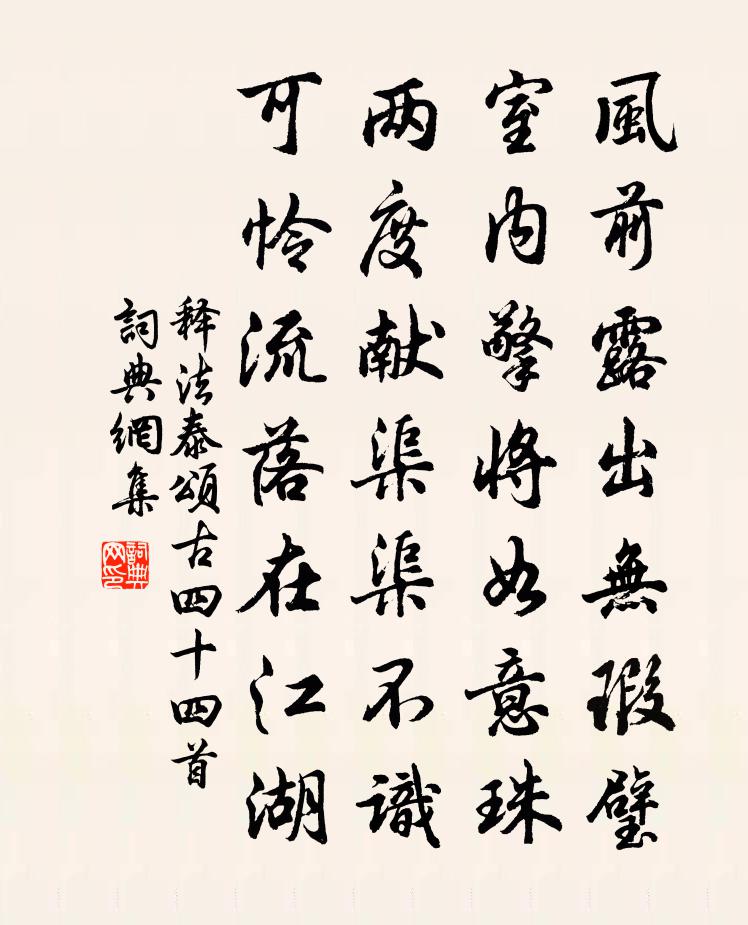 風前露出無瑕璧
室内擎将如意珠
两度献渠渠不識
可怜流落在江湖
释法泰頌古四十四首
詞典網集
詞典網印